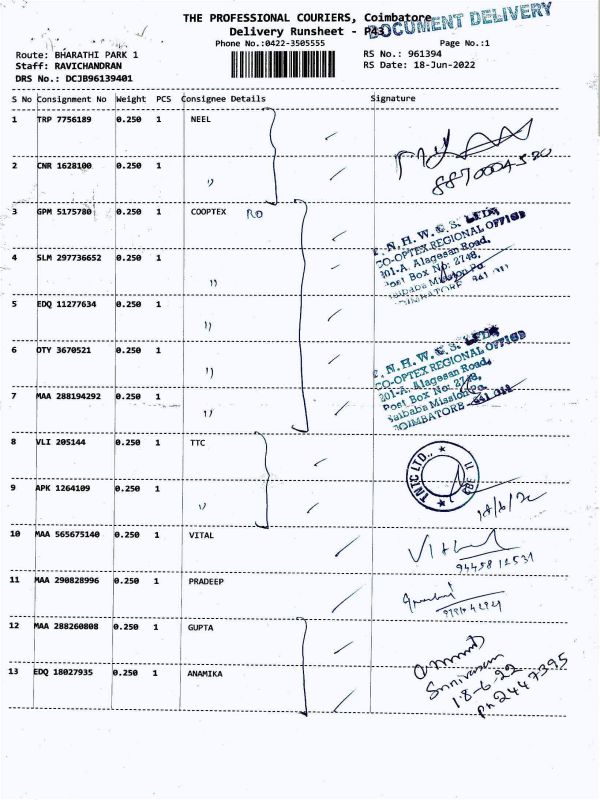 THE PROFESSIONAL COURIERS, Coimbatore
DOCUMENT DELIVERY
Delivery Runsheet - P43
Phone No.:0422-3505555
Page No.:1
Route: BHARATHI PARK 1
RS No.: 961394
Staff: RAVICHANDRAN
RS Date: 18-Jun-2022
DRS No.: DCJB96139401
S No Consignment No Weight PCS Consignee Details Signature
1 TRP 7756189 0.250 1 NEEL
2 CNR 1628100 0.250 1
8870004520
3 GPM 5175780 0.250 1 COOPTEX RO
4 SLM 297736652 0.250 1
T.N.H.W.C.S. LTD.
CO-OPTEX REGIONAL OFFICE
201-A, Alagesan Road,
Post Box No: 2748,
Saibaba Mission Po
COIMBATORE 641 011
5 EDQ 11277634 0.250 1
6 OTY 3670521 0.250 1
7 MAA 288194292 0.250 1
T.N.H.W.C.S. LTD.
CO-OPTEX REGIONAL OFFICE
201-A, Alagesan Road,
Post Box No: 2748,
Saibaba Mission Po
COIMBATORE-641 011
8 VLI 205144 0.250 1 TTC
TNIC LTD.,
CBE 11
9 APK 1264109 0.250 1
18/6/22
10 MAA 565675140 0.250 1 VITAL
Vithal
9445812531
11 MAA 290828996 0.250 1 PRADEEP
12 MAA 288260808 0.250 1 GUPTA
13 EDQ 18027935 0.250 1 ANAMIKA
Srinivasan
18-6-22
Ph 2447395